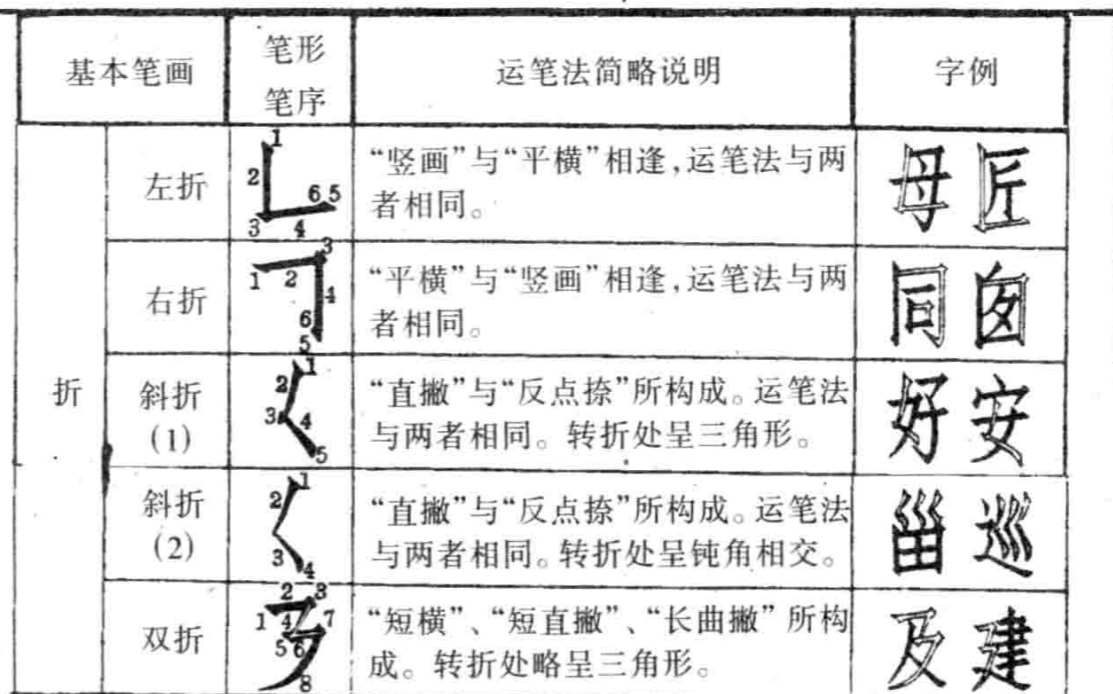 基本笔画 笔形 运笔法简略说明 字例
笔序
折
左折 1 2 3 4 5 6 “竖画”与“平横”相逢,运笔法与两 母 匠
者相同。
右折 1 2 3 4 5 6 “平横”与“竖画”相逢,运笔法与两 同 囱
者相同。
斜折 1 2 3 4 5 “直撇”与“反点捺”所构成。运笔法 好 安
(1) 与两者相同。转折处呈三角形。
斜折 1 2 3 4 “直撇”与“反点捺”所构成。运笔法 甾 巡
(2) 与两者相同。转折处呈钝角相交。
双折 1 2 3 4 5 6 7 8 “短横”、“短直撇”、“长曲撇”所构 及 建
成。转折处略呈三角形。